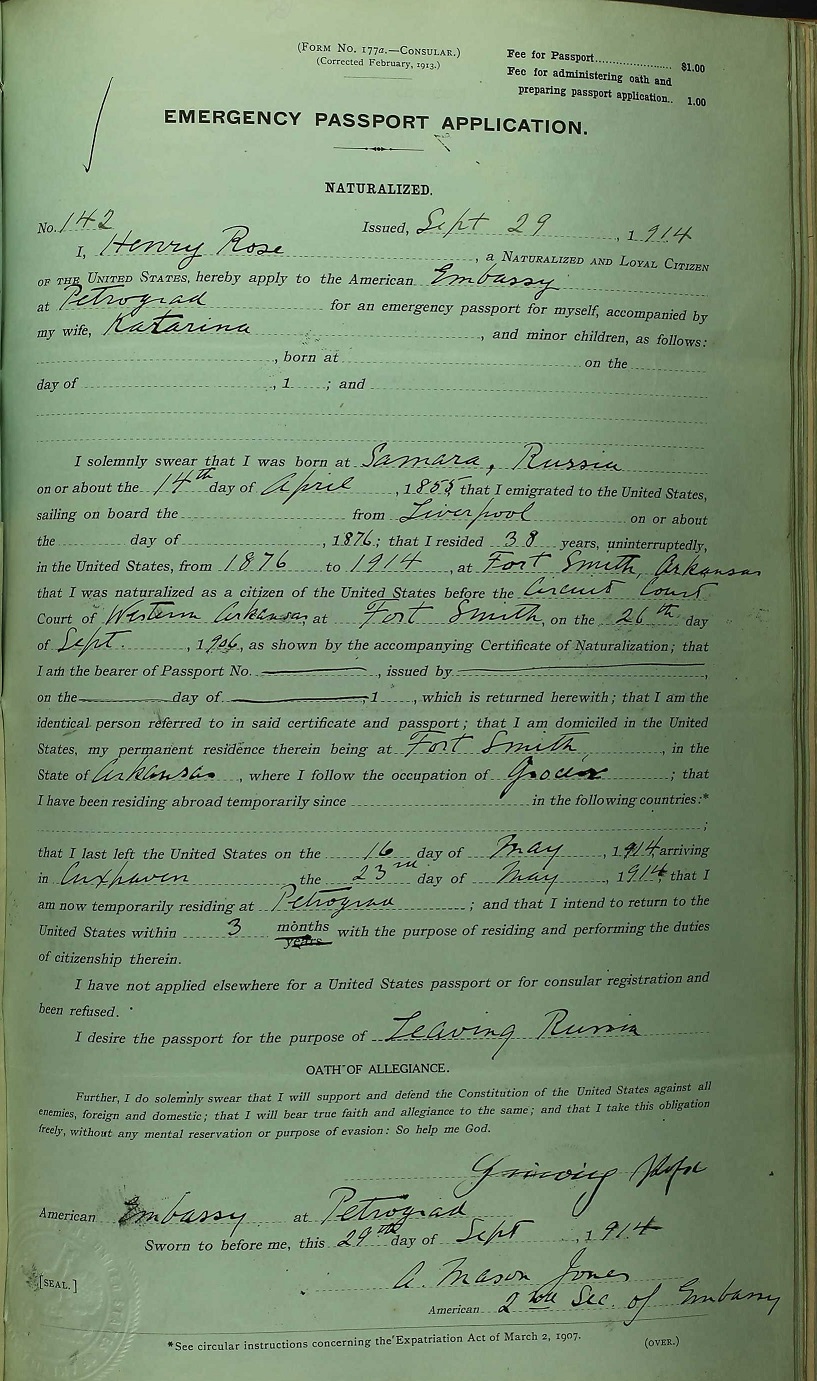 (FORM NO. 177a.—CONSULAR.)
(Corrected February, 1913.)
Fee for Passport...................... $1.00
Fee for administering oath and
preparing passport application.. 1.00
EMERGENCY PASSPORT APPLICATION.
NATURALIZED.
No. 142 Issued, Sept 29, 1914
I, Henry Rose, a NATURALIZED AND LOYAL CITIZEN
OF THE UNITED STATES, hereby apply to the American Embassy
at Petrograd for an emergency passport for myself, accompanied by
my wife, Katarina, and minor children, as follows:
, born at on the
day of , 1 ; and
I solemnly swear that I was born at Samara, Russia
on or about the 14th day of April, 1855; that I emigrated to the United States,
sailing on board the from Liverpool on or about
the day of , 1876; that I resided 38 years, uninterruptedly,
in the United States, from 1876 to 1914, at Fort Smith, Arkansas
that I was naturalized as a citizen of the United States before the Circuit Court
Court of Western Arkansas, at Fort Smith, on the 26th day
of Sept., 1906, as shown by the accompanying Certificate of Naturalization; that
I am the bearer of Passport No. , issued by ,
on the day of , 1 , which is returned herewith; that I am the
identical person referred to in said certificate and passport; that I am domiciled in the United
States, my permanent residence therein being at Fort Smith, in the
State of Arkansas, where I follow the occupation of Grocer; that
I have been residing abroad temporarily since in the following countries:*
;
that I last left the United States on the 16 day of May, 1914, arriving
in Cuxhaven the 23rd day of May, 1914, that I
am now temporarily residing at Petrograd; and that I intend to return to the
United States within 3 months years with the purpose of residing and performing the duties
of citizenship therein.
I have not applied elsewhere for a United States passport or for consular registration and
been refused.
I desire the passport for the purpose of Leaving Russia
OATH OF ALLEGIANCE.
Further, I do solemnly swear that I will support and defend the Constitution of the United States against all
enemies, foreign and domestic; that I will bear true faith and allegiance to the same; and that I take this obligation
freely, without any mental reservation or purpose of evasion: So help me God.
American Embassy at Petrograd
Sworn to before me, this 29th day of Sept, 1914
A. Mason Jones
[SEAL.]
American 2nd Sec. of Embassy
*See circular instructions concerning the Expatriation Act of March 2, 1907.
(OVER.)